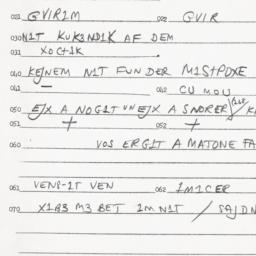 021 GVIR1M 022 GVIR
030 N1T KUK3ND1K AF DEM
031 XOCT1K
040 KEJNEM N1T FUN DER M1SHPOXE
041 — 042 CU MOU
050 EJX A NOG1T UN EJX A SNORER
051 + 052 +
060 VOS ERG1T A MATONE FA
061 VEN3-1T VEN 062 1M1CER
070 X1B3 M3 BET 1M N1T / SAJDN